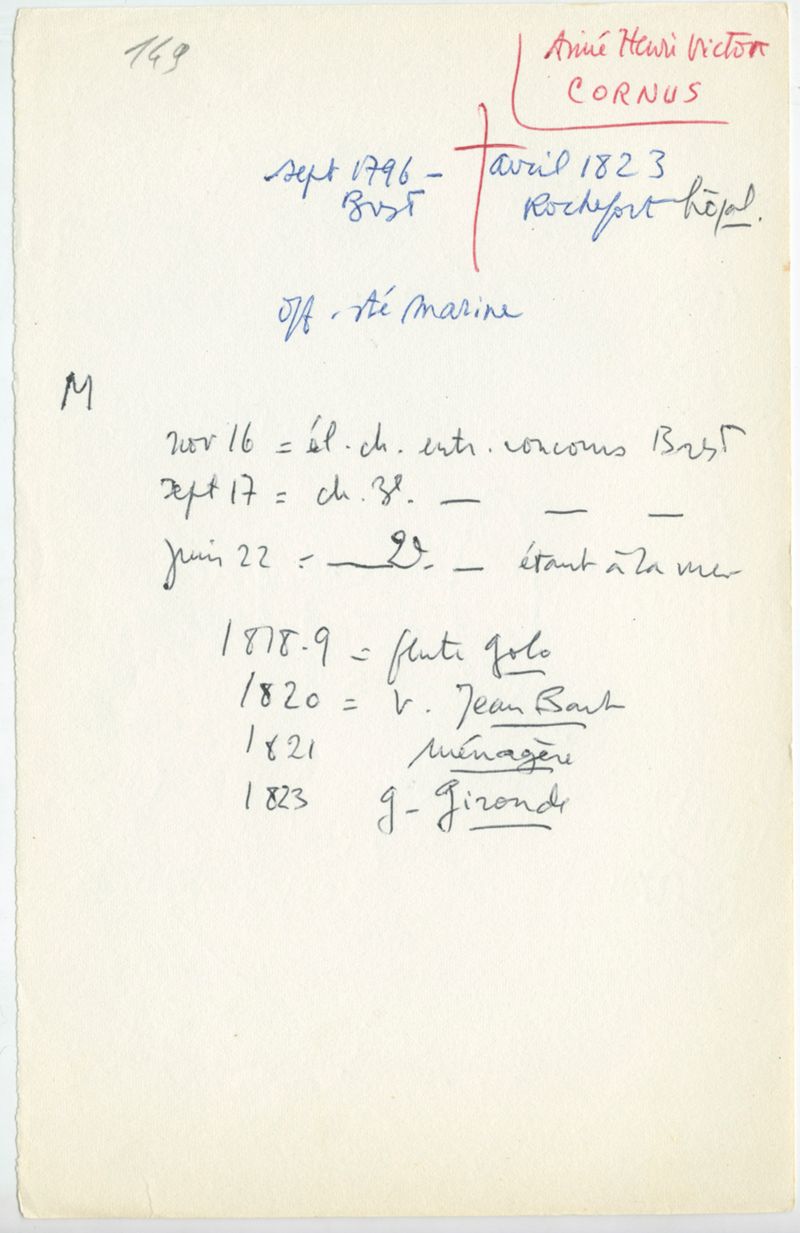 149
Aimé Henri Victor
CORNUS
sept 1796 - † avril 1823
Brest Rochefort hôpal.
off. sté marine
M
nov 16 = él. ch. entr. concours Brest
sept 17 = ch. 3e. — — —
juin 22 = — 2e. — étant à la mer
1818.9 = flute Golo
1820 = v. Jean Bart
1821 Ménagère
1823 g- Gironde